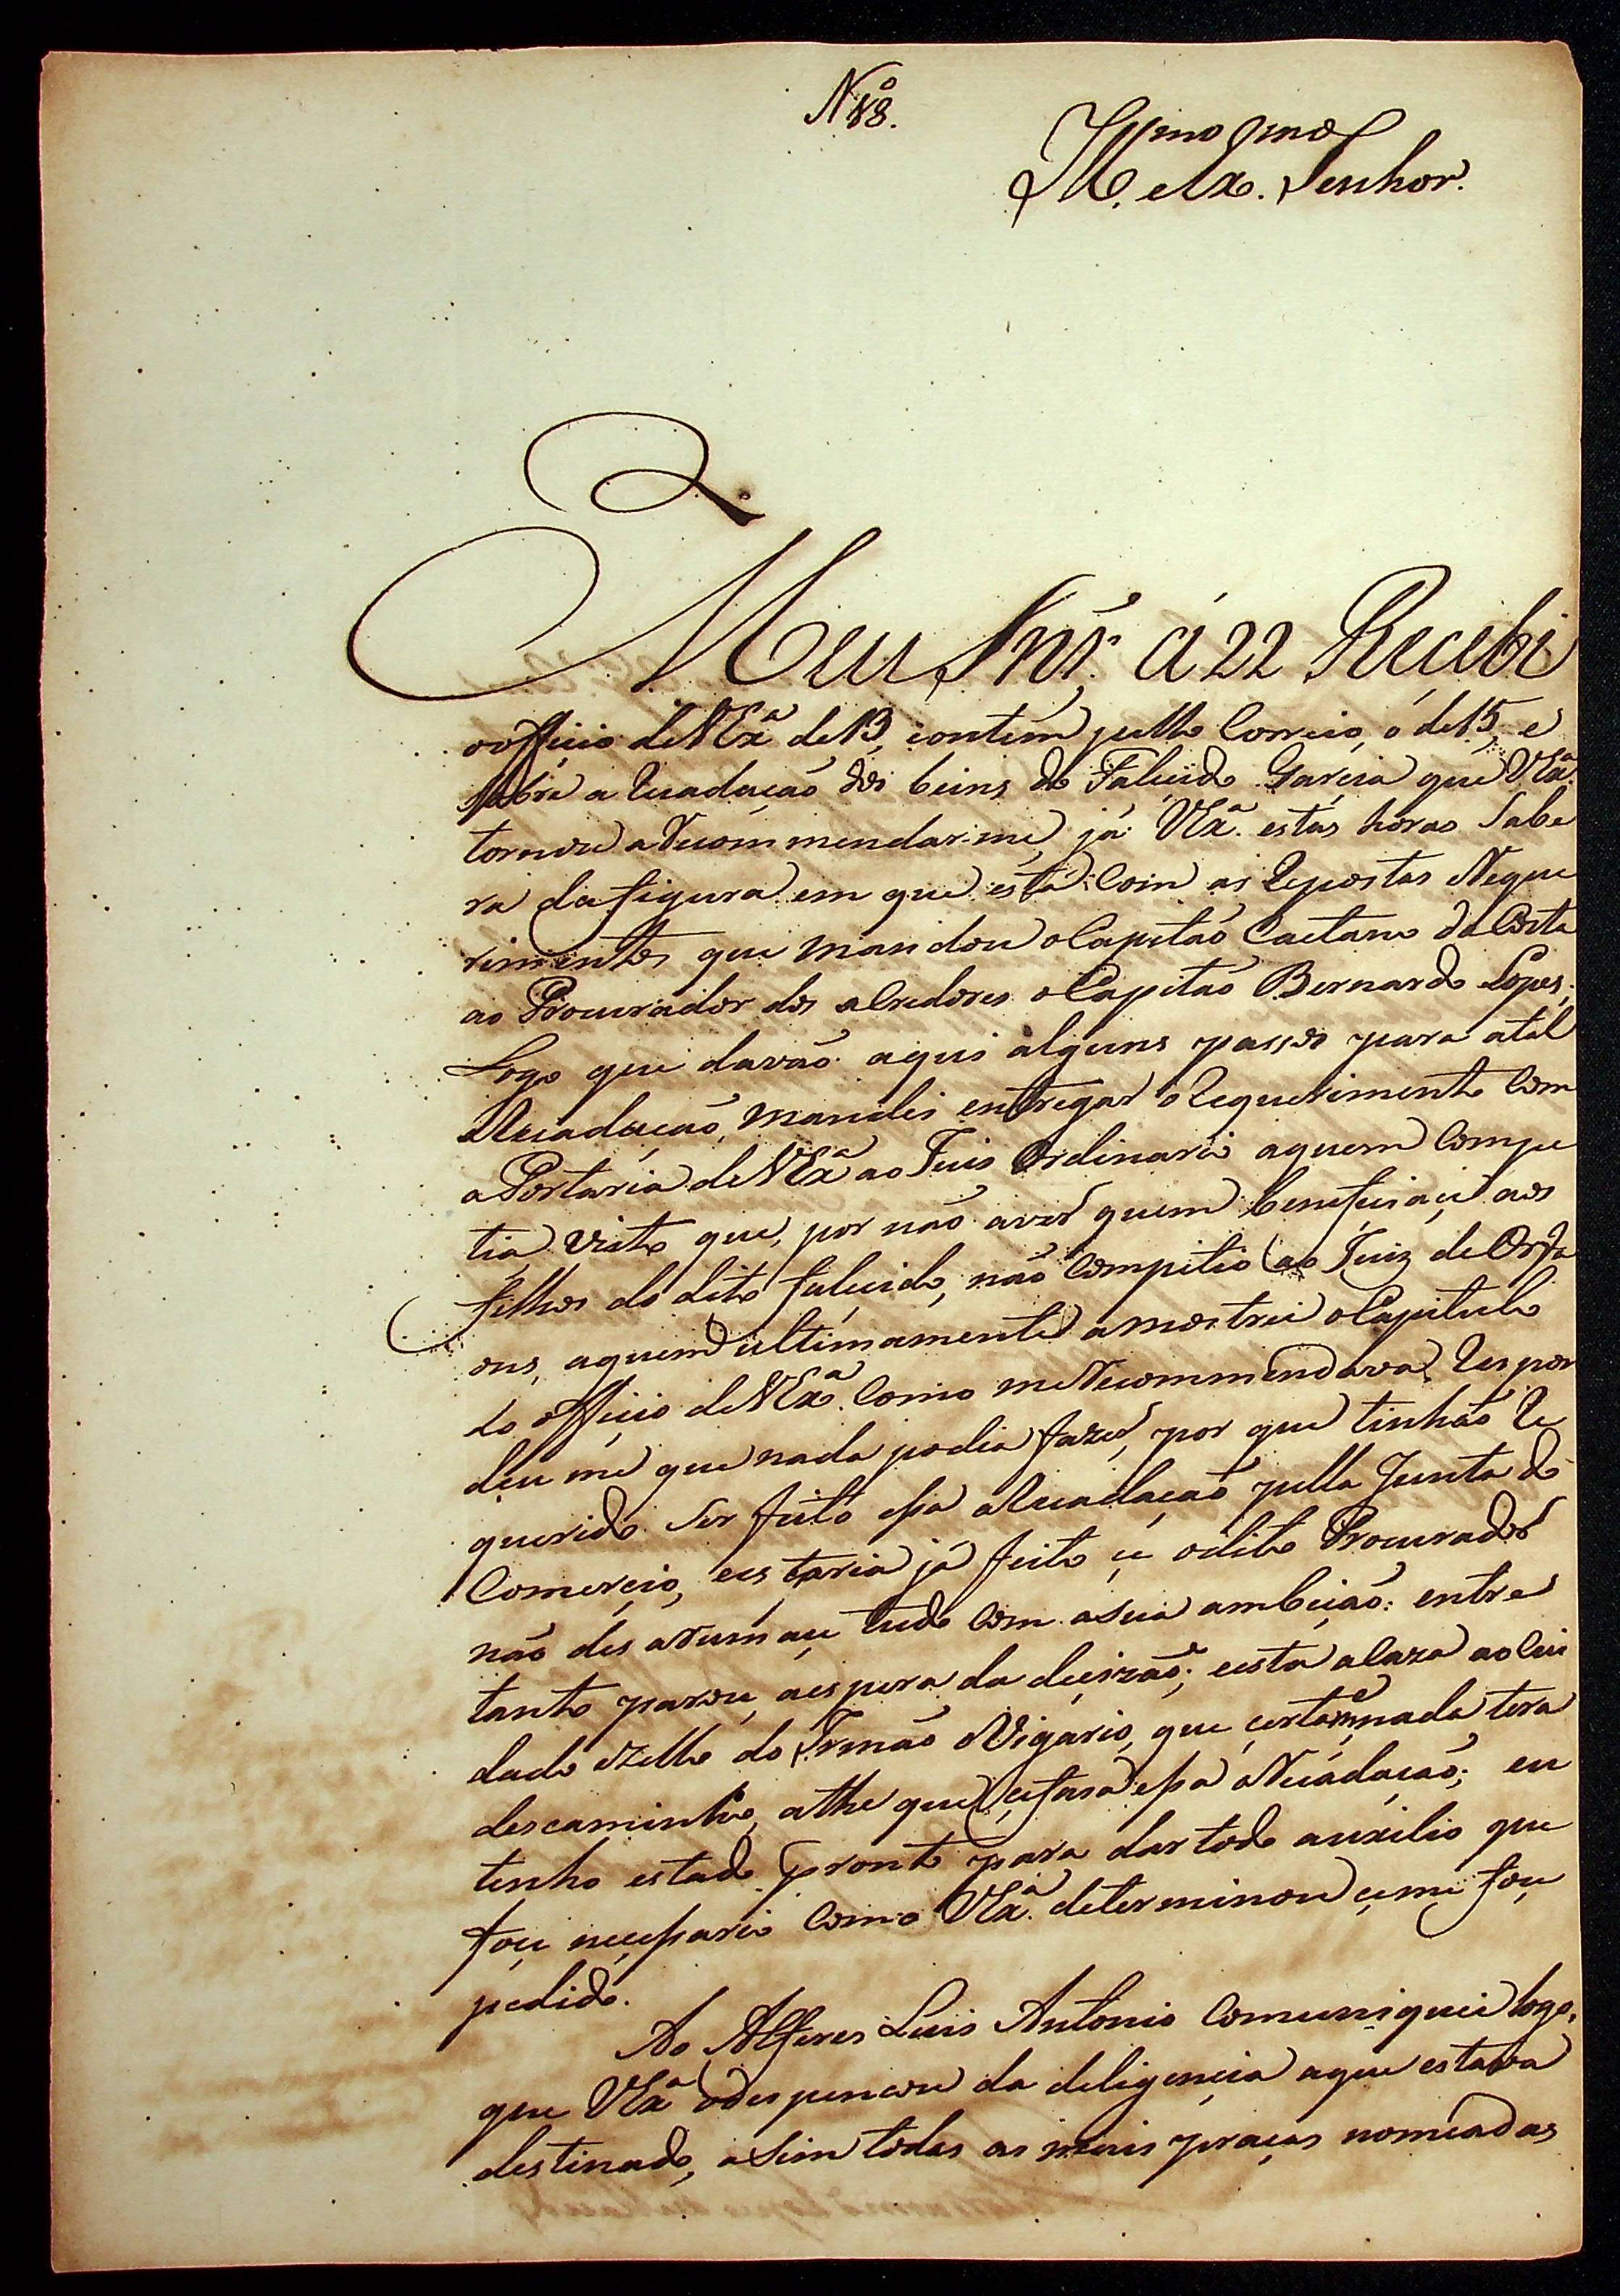 N.º 88.
Illmo e Exmo Senhor.
Meu Snr. á 22 Recebi
o officio de VExª de 13, e ontem pello Correio, o de 15, e
sobre a Recadação dos beins do Falecido Garcia que VExª
tornou a Recommendar-me, já VExª estas horas Sabe
ra da figura em que está: Com as Repostas Reque
rimentos que mandou o Capitão Caetano da Costa
ao Procurador dos a Credores o Capitão Bernardo Lopes.
Logo que davão aqui alguns passos para a tal
Recadação, mandei entregar o Requerimento Com
a Portaria de VExª ao Juis Ordinario aquem Compe
tia visto que, por não aver quem beneficiaçe aos
filhos do dito falecido, não Compitio ao Juiz de Orfa
ons, aquem ultimamente amostrei o Capitulo
do officio de VExª Como me Recommendava, Respon
deu me que nada podia fazer, por que tinhão Re
querido Ser feito essa a Recadação pella Junta do
Comercio, e estaria já feito çe o dito Procurador
não des a Rumaçe tudo Com a sua ambição: entre
tanto parou, a espera da decizão; e esta a Caza ao Cui
dado e Zello do Irmão o Vigario, que çertamᵉ nada tera
descaminho, athe que çe fasa essa a Recadação; eu
tenho estado pronto para dar todo auxilio que
foçe neçessario Como VExª determinou çe me foçe
pedido.
Ao Alferes Luis Antonio Comuniquei logo,
que VExª o despençou da deligençia aque estava
destinado, asim todas as mais praças nomeadas